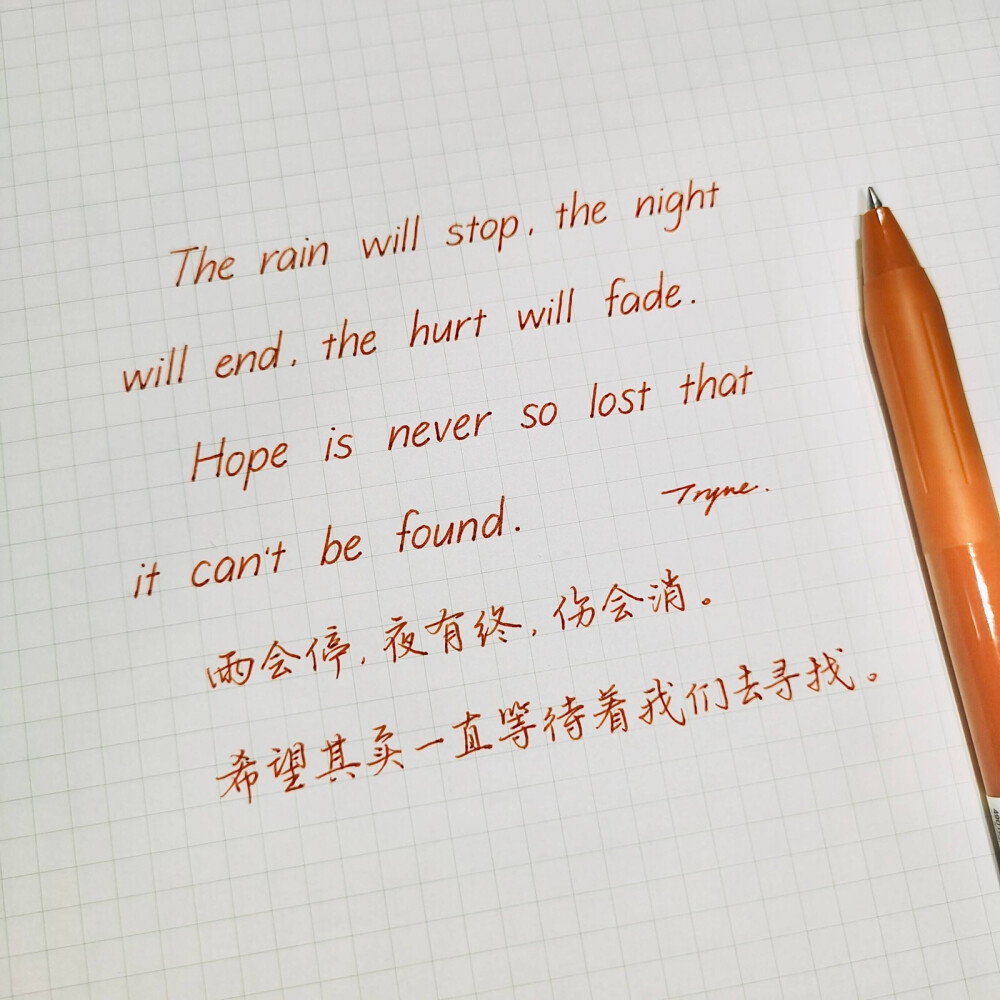 The rain will stop, the night
will end, the hurt will fade.
Hope is never so lost that
it can't be found.
Tryne.
雨会停,夜有终,伤会消。
希望其实一直等待着我们去寻找。